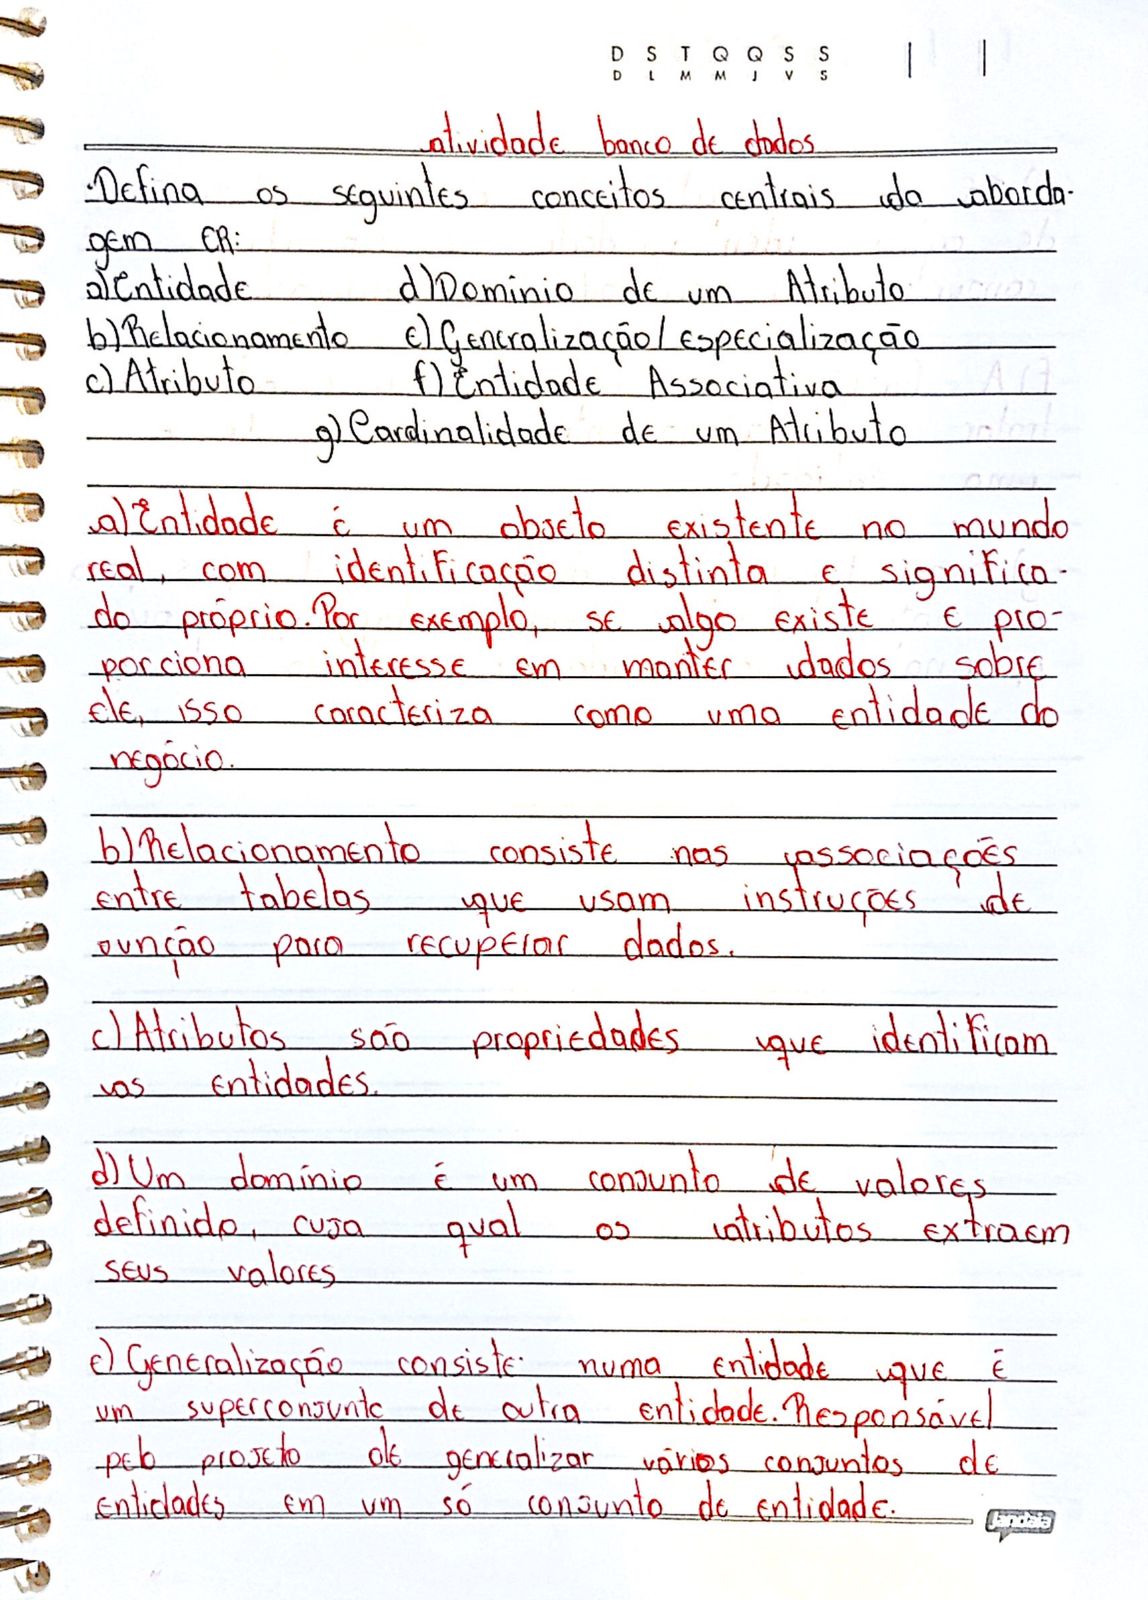 D S T Q Q S S
D L M M J V S
atividade banco de dados
.Defina os seguintes conceitos centrais da aborda-
gem ER:
a)Entidade d)Domínio de um Atributo
b)Relacionamento e)Generalização/especialização
c)Atributo f)Entidade Associativa
g)Cardinalidade de um Atributo
a)Entidade é um objeto existente no mundo
real, com identificação distinta e significa-
do próprio.Por exemplo, se algo existe e pro-
porciona interesse em manter dados sobre
ele, isso caracteriza como uma entidade do
negócio.
b)Relacionamento consiste nas associações
entre tabelas que usam instruções de
ounção para recuperar dados.
c)Atributos são propriedades que identificam
as entidades.
d)Um domínio é um conjunto de valores
definido, cuja qual os atributos extraem
seus valores
e)Generalização consiste numa entidade que é
um superconjunto de outra entidade.Responsável
pelo projeto de generalizar vários conjuntos de
entidades em um só conjunto de entidade.
Jandaia